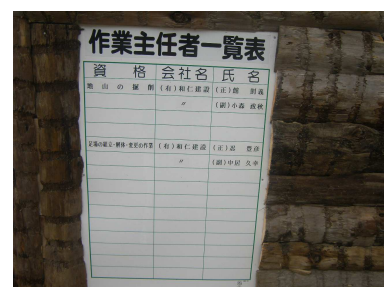 作業主任者一覧表
資格 会社名 氏名
地山の掘削 (有)和仁建設 (正)
〃 (副)小森
足場の組立・解体・変更の作業 (有)和仁建設 (正)
〃 (副)中居 久幸